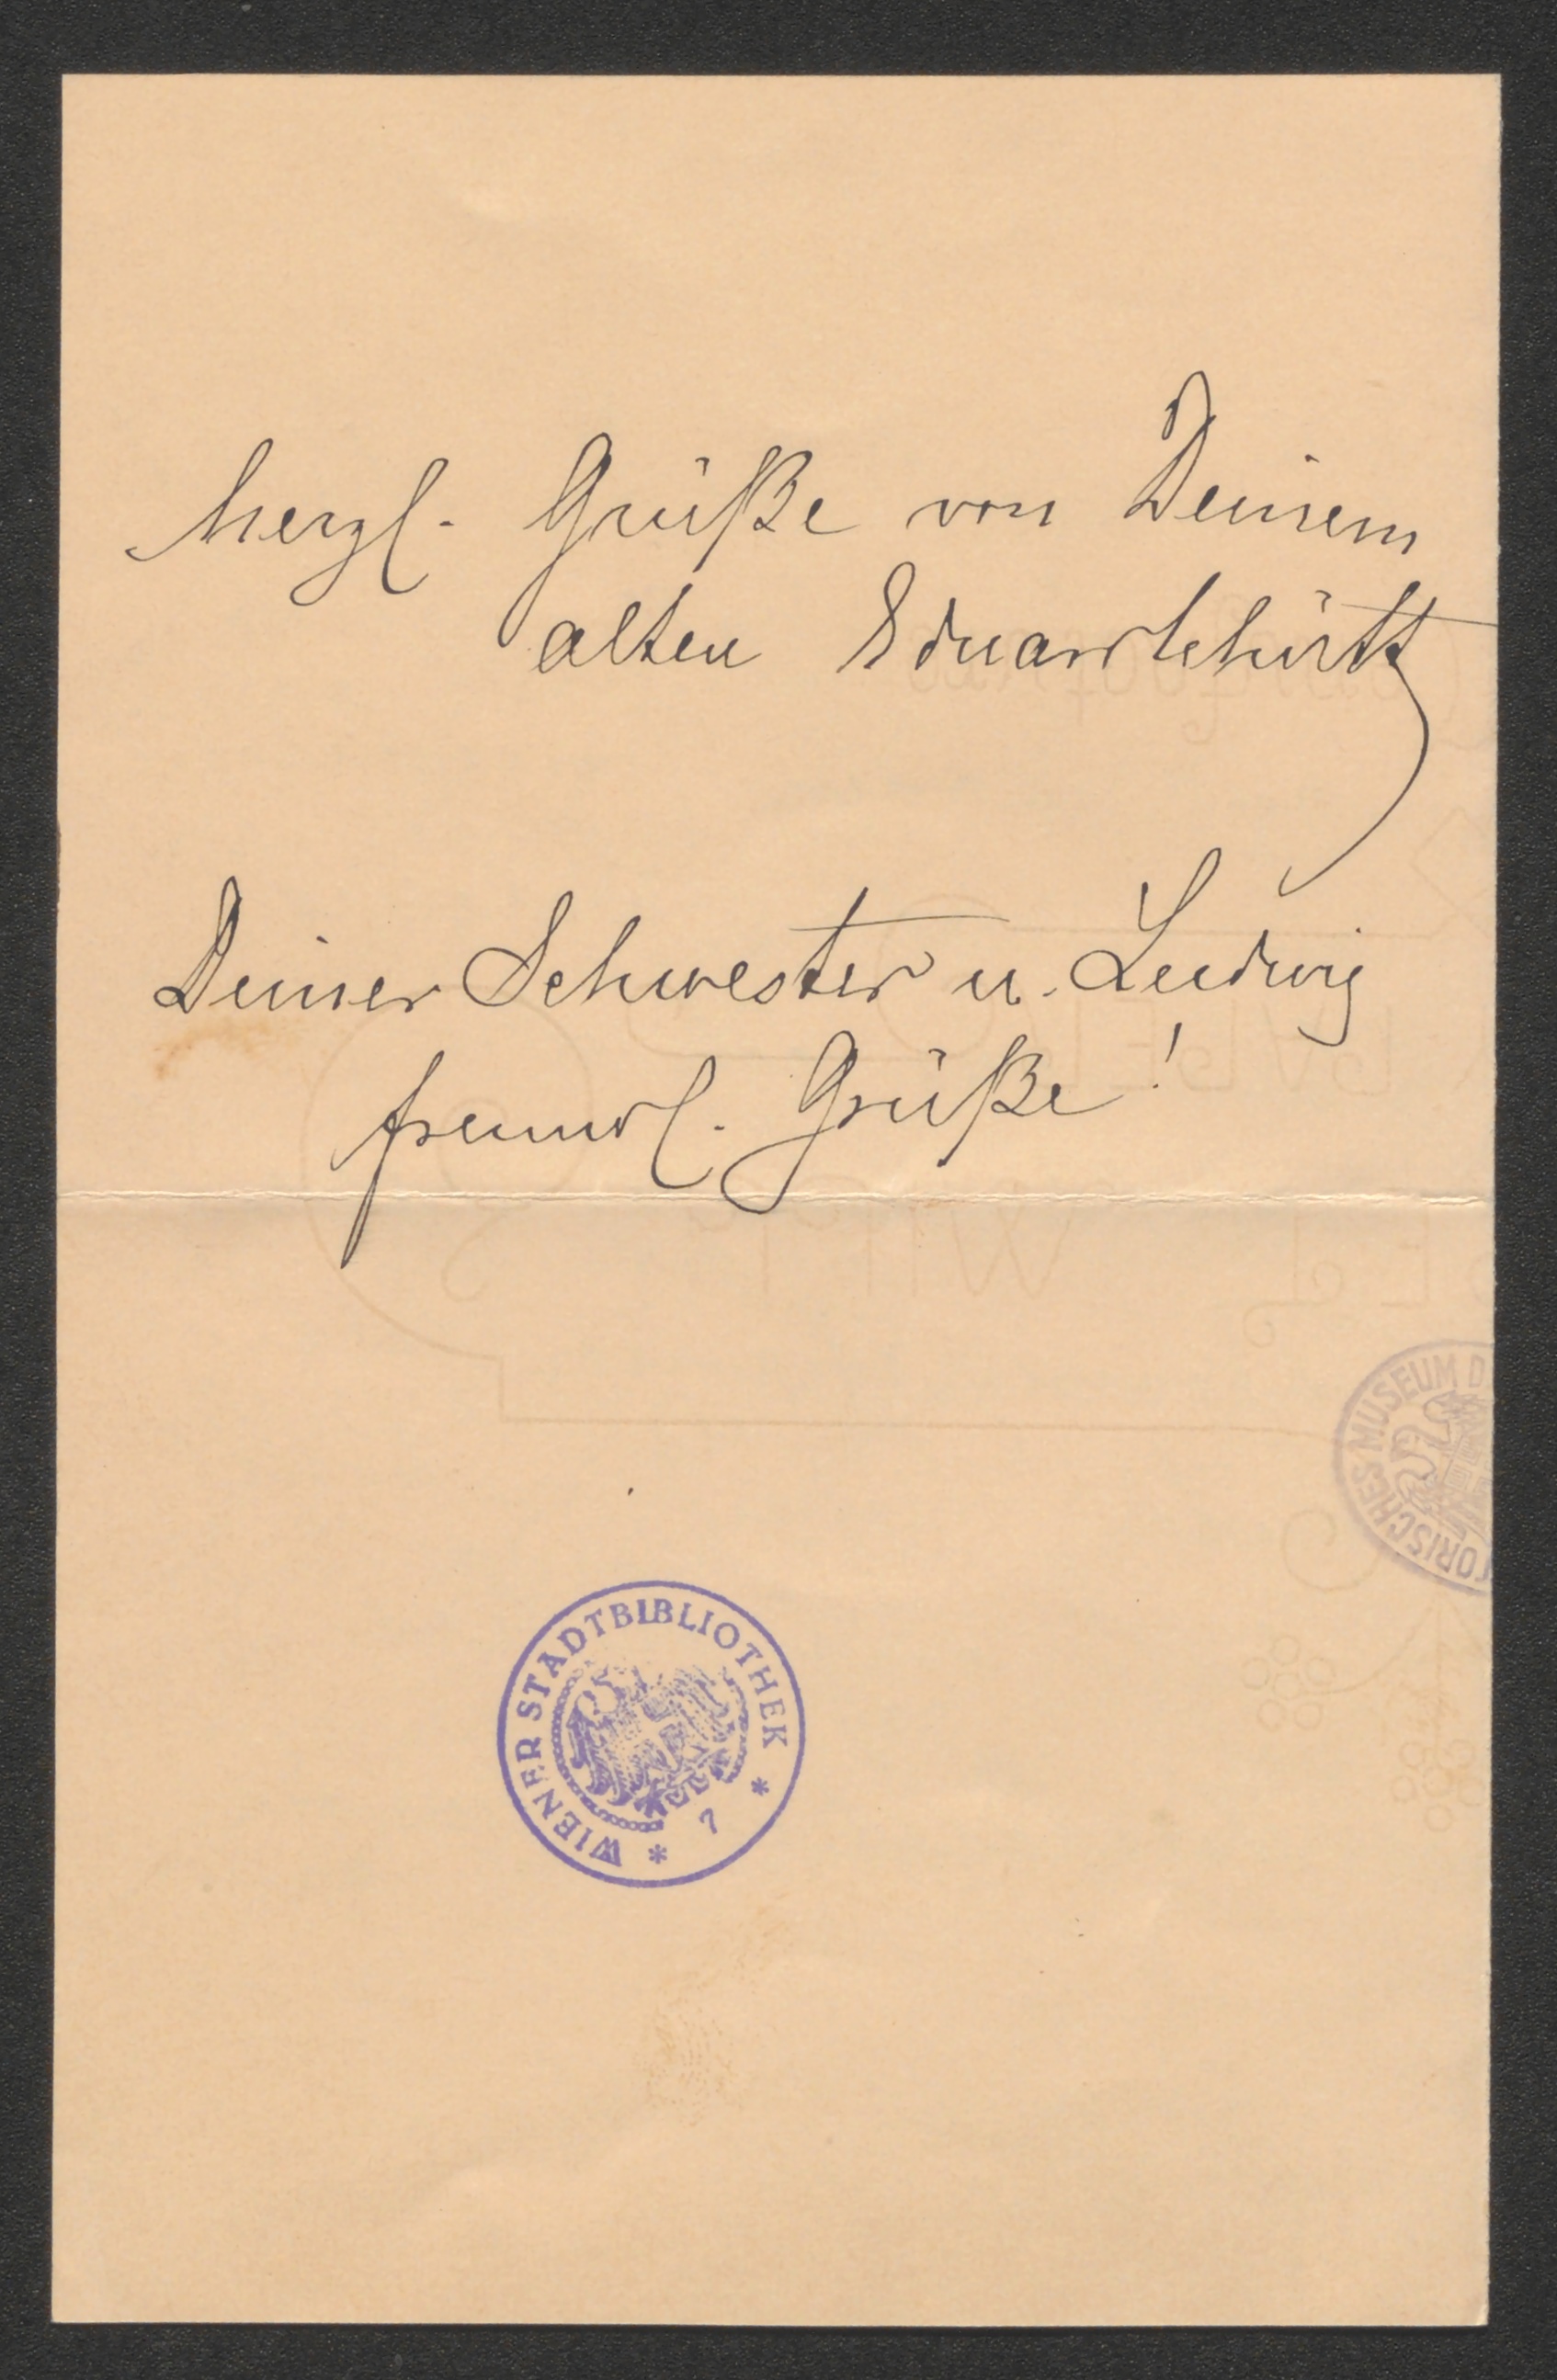 herzl. Grüße von Deinem
alten Eduard Schütt
Deiner Schwester u. Ludwig
freundl. Grüße!
WIENER STADTBIBLIOTHEK * 7 *